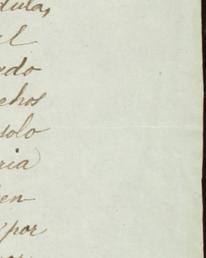 dulas,
al
edo
echos
solo
ria
en
por